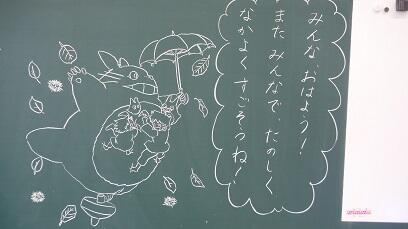 みんな おはよう！
また みんなで、たのしく
なかよく すごそうね！